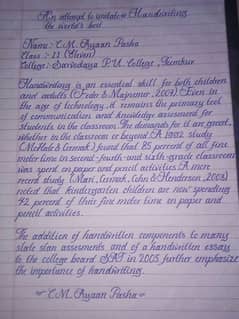 An attempt to imitate Handwriting
the world's best
Name:- C.M. Ayaan Pasha
Class:- 11 (Eleven)
College:- Sarvodaya P.U. College, Tumkur
Handwriting is an essential skill for both children
and adults (Feder & Majnemer, 2007). Even in
the age of technology, it remains the primary tool
of communication and knowledge assesment for
students in the classroom. The demands for it are great,
whether in the classroom or beyond. A 1992 study
(McHale & Cermak) found that 85 percent of all fine
motor time in second-fourth-and sixth-grade classrooms
was spent on paper and pencil activities. A more
recent study (Marr, Cermak, Cohn & Henderson, 2003)
noted that kindergarten children are now spending
42 percent of their fine motor time on paper and
pencil activities.
The addition of handwritten components to many
state stan assesments and of a handwritten essay
to the college board SAT in 2005 further emphasize
the importance of handwriting.
C.M. Ayaan Pasha